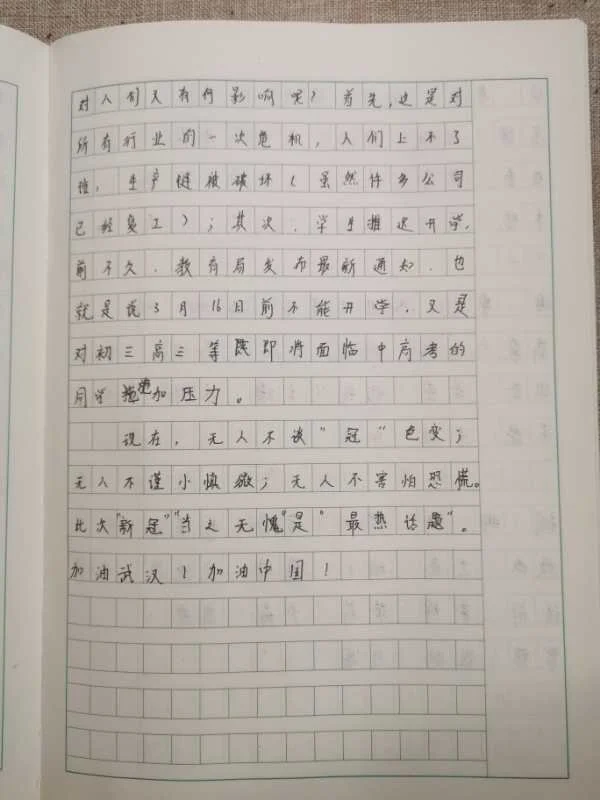 对人们又有何影响呢？首先，这是对
所有行业的一次危机，人们上不了
班，生产链被破坏（虽然许多公司
已经复工）；其次，学生推迟开学，
前不久，教育局发布最新通知，也
就是说3月16日前不能开学，又是
对初三高三等既即将面临中高考的
同学施加压力。
现在，无人不谈“冠”色变；
无人不谨小慎微；无人不害怕恐慌。
此次“新冠”“当之无愧”是“最热话题”。
加油武汉！加油中国！